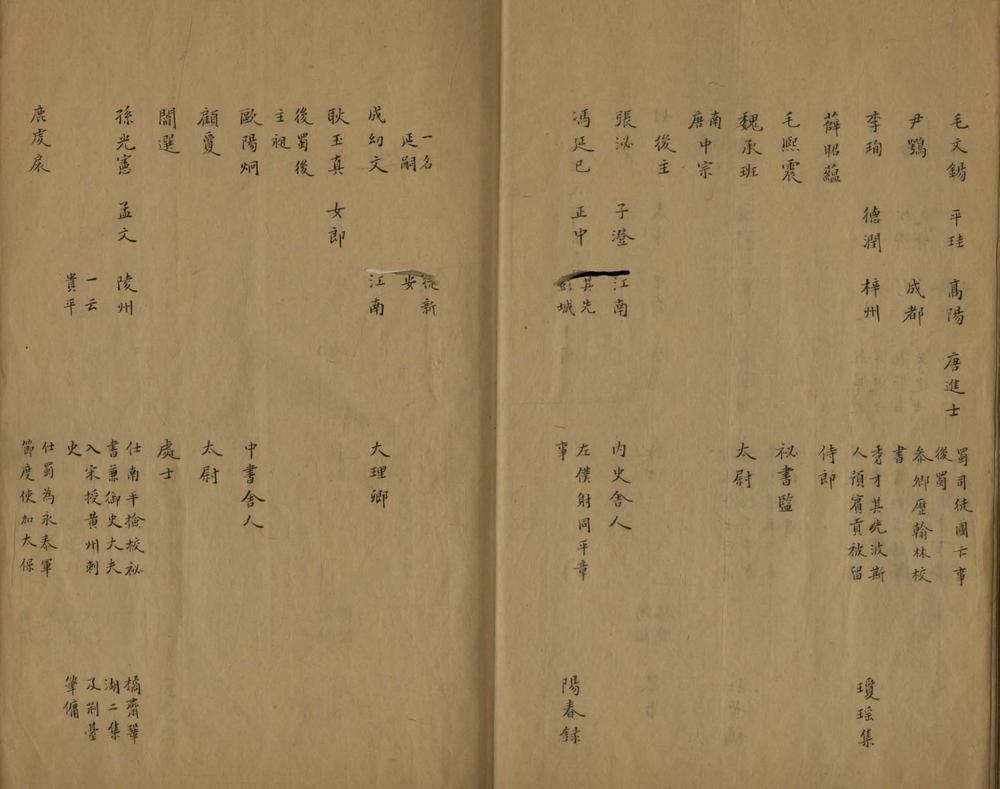 毛文錫 平珪 高陽 唐進士 蜀司徒國亡事後蜀
尹鶚 成都 參卿歷翰林校書
李珣 德潤 梓州 秀才其先波斯人預賓貢被留 瓊瑤集
薛昭蘊 侍郎
毛熙震 祕書監
魏承班 太尉
南唐中宗
後主
張泌 子澄 江南 內史舍人
馮延巳 正中 其先彭城 左僕射同平章事 陽春録
一名延嗣 從新安
成幼文 江南 大理卿
耿玉真 女郎
後蜀後主昶
歐陽炯 中書舍人
顧夐 太尉
閻選 處士
孫光憲 孟文 陵州 一云貴平 仕南平檢校祕書兼御史大夫入宋授黃州刺史 橘齋鞏湖二集及荊臺筆傭
鹿虔扆 仕蜀為永泰軍節度使加太保